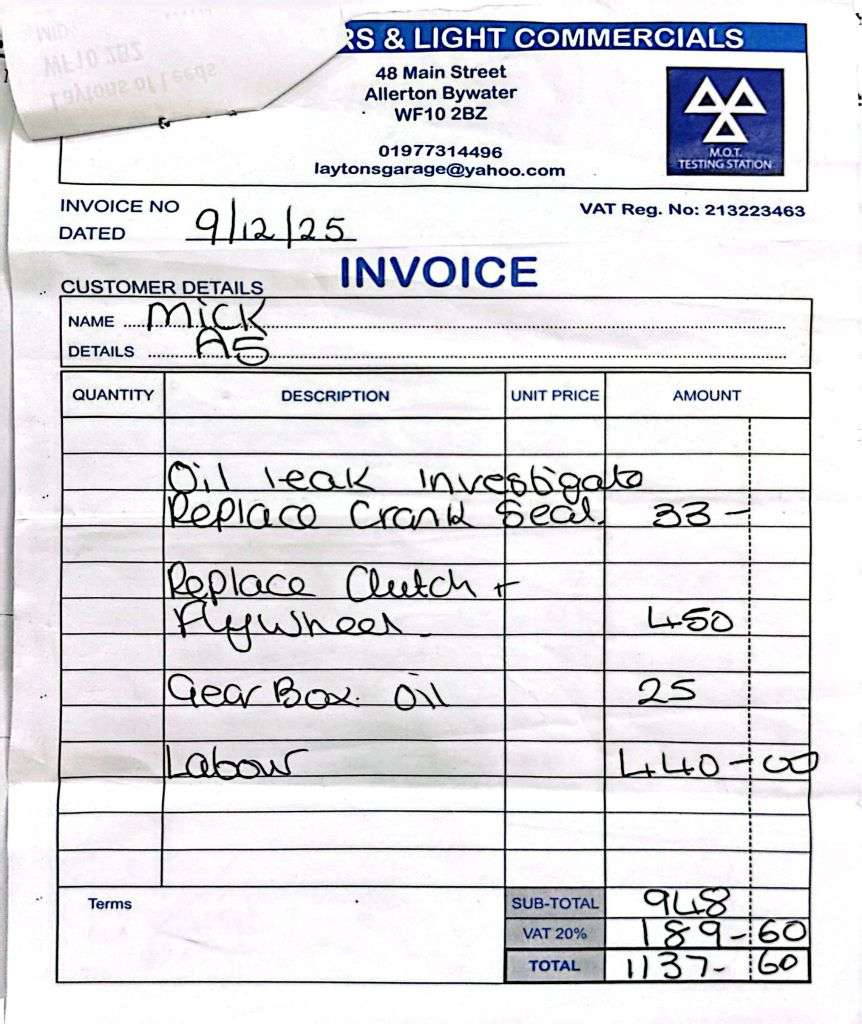 RS & LIGHT COMMERCIALS
48 Main Street
Allerton Bywater
WF10 2BZ
01977314496
laytonsgarage@yahoo.com
M.O.T.
TESTING STATION
Laytons of Leeds
WF10 2BZ
MID:
INVOICE NO
VAT Reg. No: 213223463
DATED 9/12/25
INVOICE
CUSTOMER DETAILS
NAME Mick
DETAILS A5
QUANTITY DESCRIPTION UNIT PRICE AMOUNT
Oil leak investigate
Replace Crank Seal. 33 -
Replace Clutch +
Flywheel - 450
Gear Box Oil 25
Labour 440-00
Terms
SUB-TOTAL 948
VAT 20% 189-60
TOTAL 1137-60